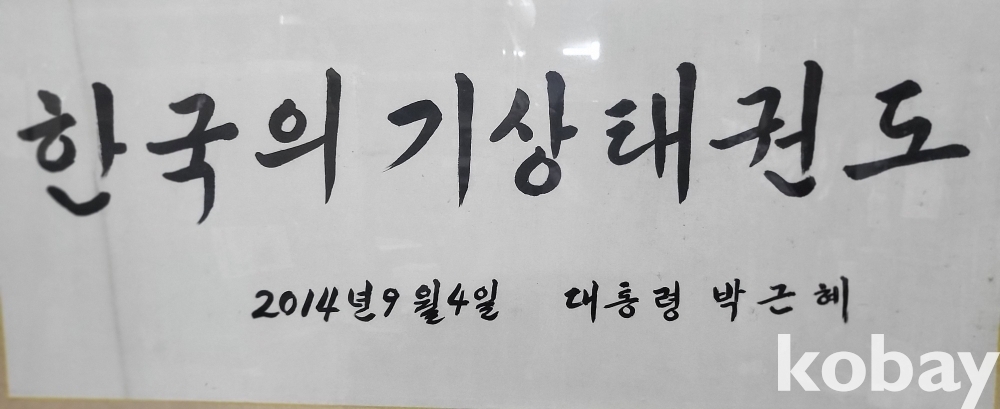 한국의 기상 태권도
2014년 9월 4일 대통령 박근혜
kobay